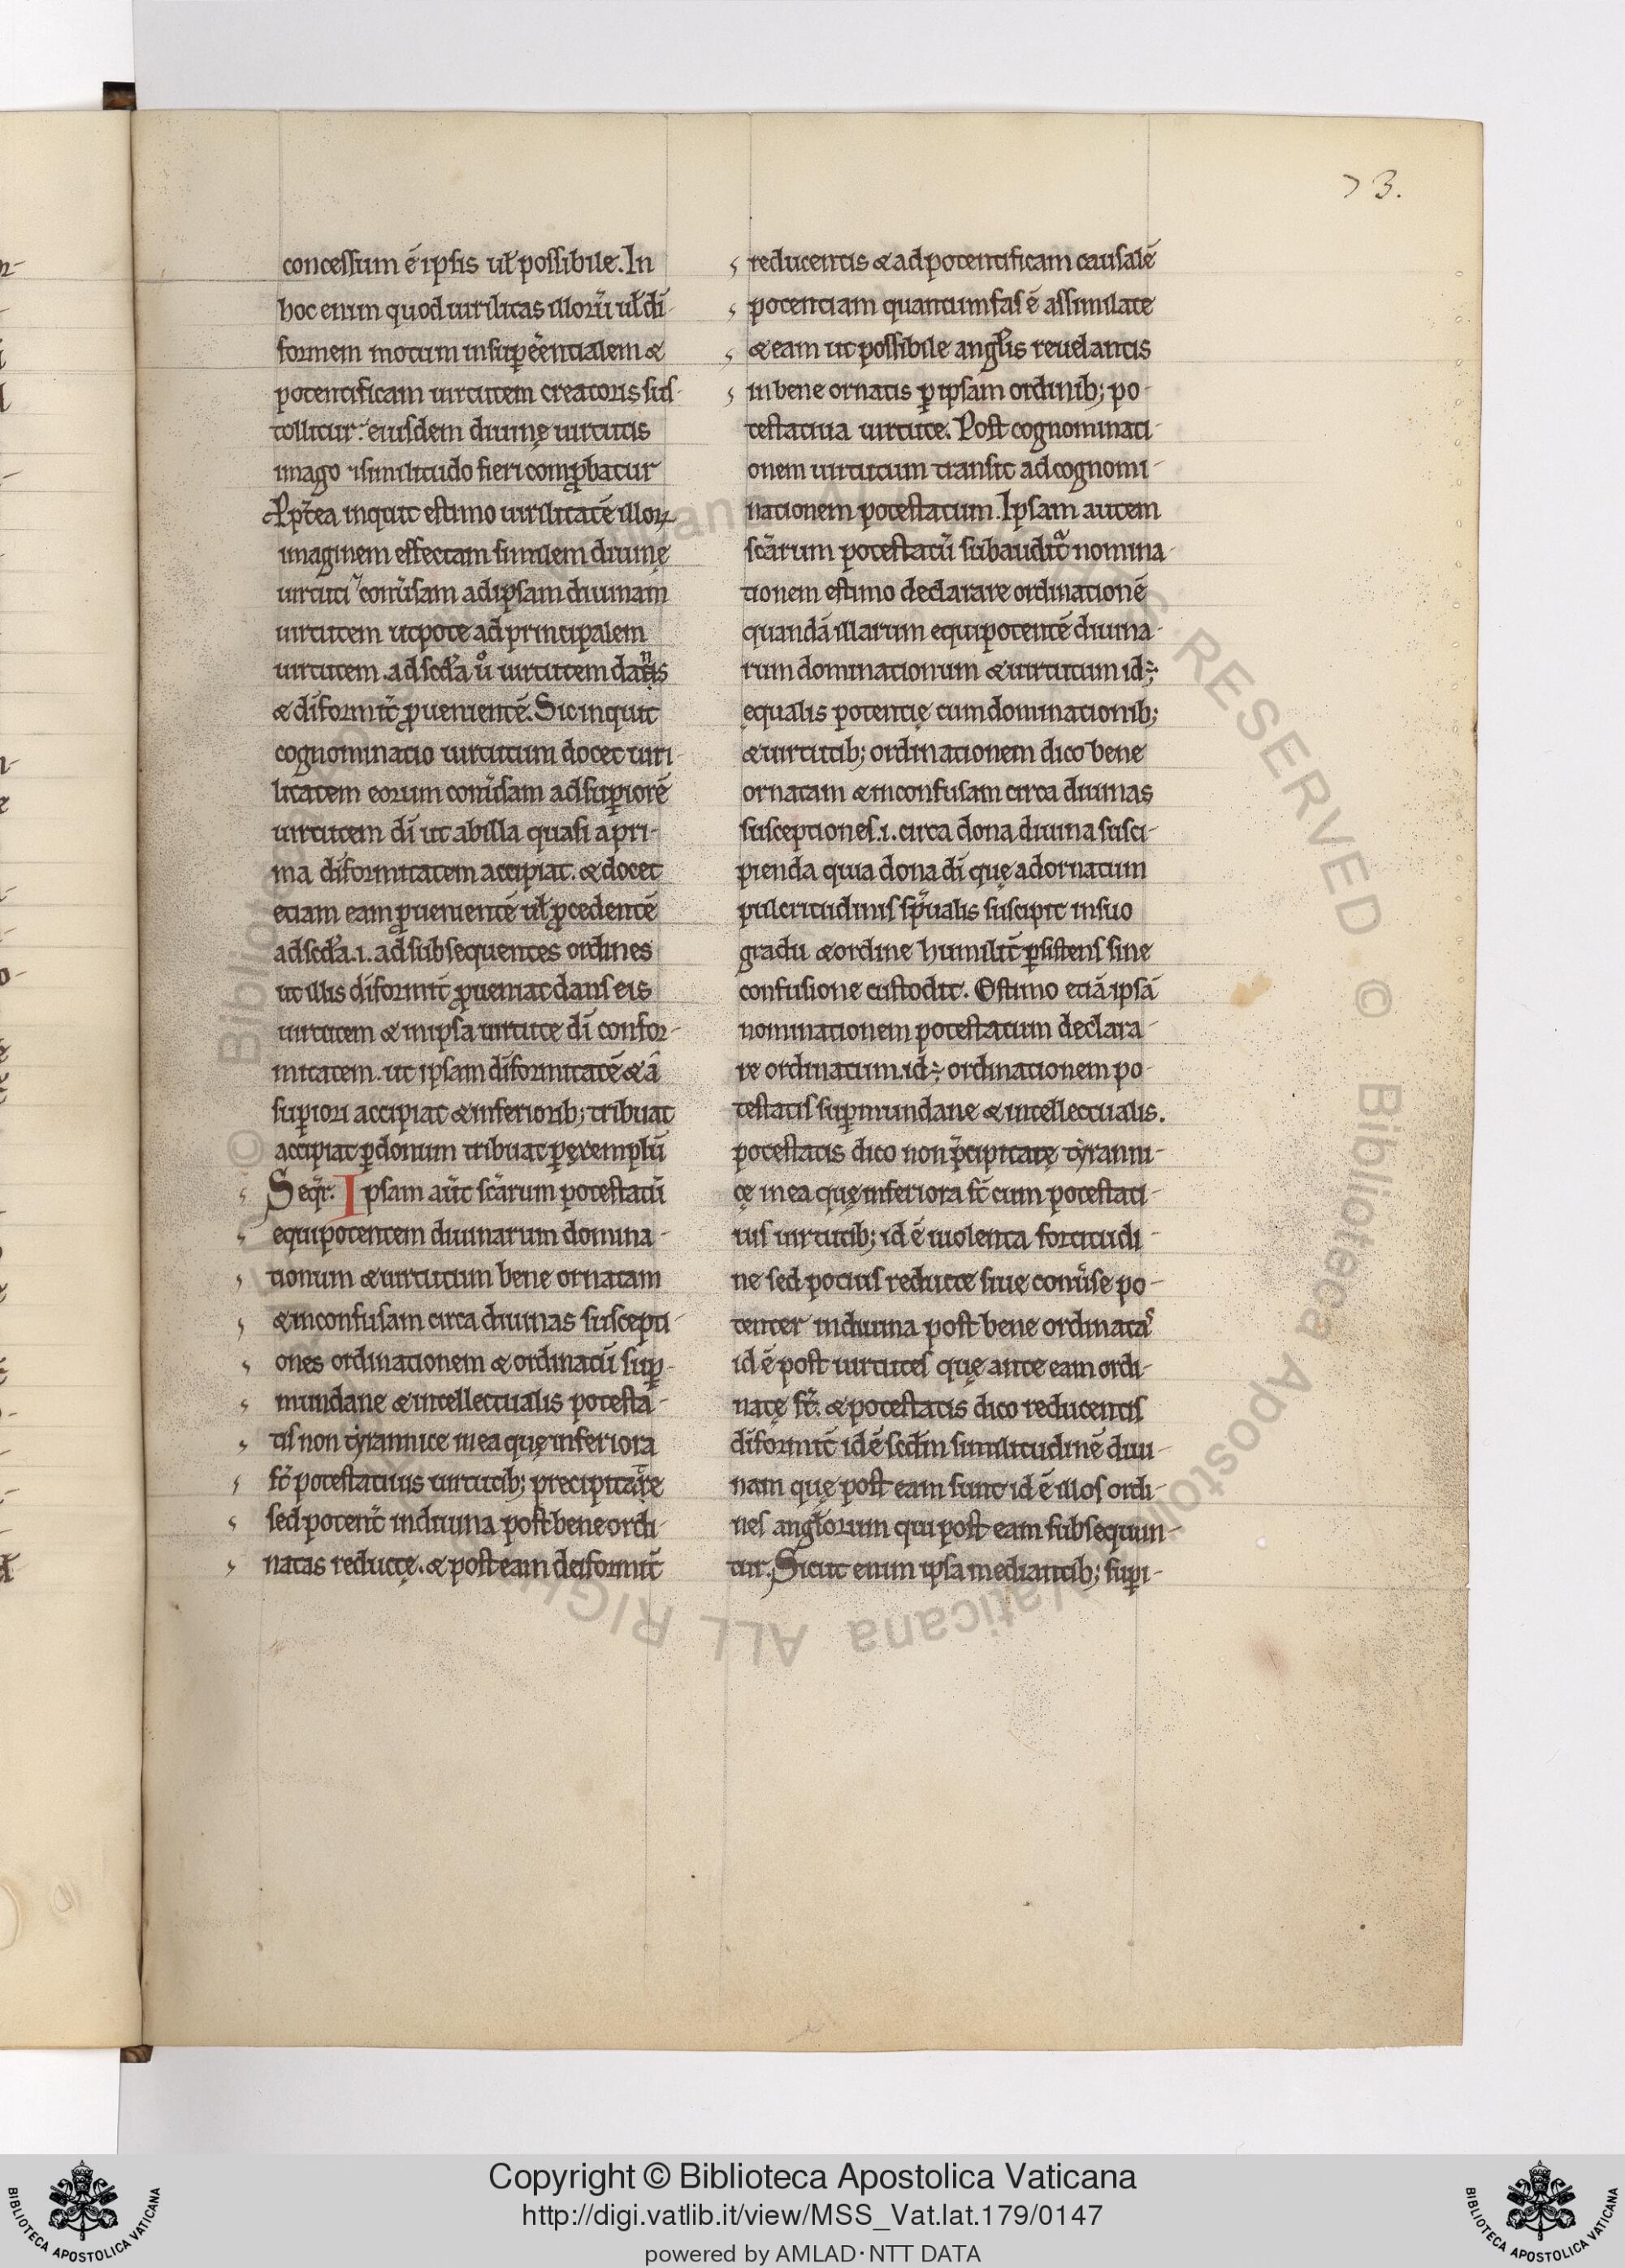 73.
concessum ē ipsis ul̄ possibile. In
hoc enim quod uirilitas illorū ul̄ di-
formem motum insuꝑēentialem &
potentificam uirtutem creatoris sus-
tollitur. eiusdem diuinę uirtutis
imago 7 similitudo fieri comꝓbatur
Ꝓpt̄ea inquit estimo uirilitatē illoꝝ
imaginem effectam similem diuinę
uirtuti 7 conuͥsam ad ipsam diuinam
uirtutem utpote ad principalem
uirtutem. ad scd̄a ůo uirtutem dantis
& dīformit̄ ꝓuenientē. Sic inquit
cognominatio uirtutum docet uiri-
litatem eorum conu̓sam ad suꝑiorē
uirtutem dī ut ab illa quasi a pri-
ma dīformitatem accipiat. & docet
etiam eam ꝓuenientē ul̄ ꝓcedentē
ad scd̄a .i. ad subsequentes ordines
ut illis dīformit̄ ꝓueniat dans eis
uirtutem & in ipsa uirtute dī confor-
mitatem. ut ipsam dīformitatē & a
suꝑiori accipiat & inferiorib; tribuat
accipiat ꝑ donum tribuat ꝑ exemplū
Seqr̄. Ipsam aūt sc̄arum potestatū
equipotentem diuinarum domina-
tionum & uirtutum bene ornatam
& inconfusam circa diuinas suscepti-
ones ordinationem & ordinatū suꝑ-
mundane & intellectualis potesta-
tis non tyrannice in ea quę inferiora
st̄ potestatiuis uirtutib; precipitare
sed potent̄ in diuina post bene ordi-
natas reductę. & post eam deiformit̄
reducentis & ad potentificam causalē
potentiam quantum fas ē assimilate
& eam ut possibile angl̄is reuelantis
in bene ornatis ꝑ ipsam ordinib; po-
testatiua uirtute. Post cognominati-
onem uirtutum transit ad cognomi-
nationem potestatum. Ipsam autem
sc̄arum potestatū subauditͬ nomina-
tionem estimo declarare ordinationē
quandā illarum equipotentē diuina-
rum dominationum & uirtutum id ÷
ęqualis potentię cum dominationib;
& uirtutib; ordinationem dico bene
ornatam & inconfusam circa diuinas
susceptiones .i. circa dona diuina susci-
pienda quia dona dī quę ad ornatum
pulcritudinis sp̄ualis suscipit in suo
gradu & ordine humilit̄ ꝑsistens sine
confusione custodit. Estimo etiā ipsā
nominationem potestatum declara-
re ordinatum id ÷ ordinationem po-
testatis suꝑmundane & intellectualis.
potestatis dico non p̄cipitatę tyranni-
cę in ea quę inferiora st̄ cum potestati-
uis uirtutib; id ē uiolenta fortitudi-
ne sed potius reducte siue conu̓se po-
tenter in diuina post bene ordinatas
id ē post uirtutes quę ante eam ordi-
natę st̄. & potestatis dico reducentis
dīformit̄ id ē scdm̄ similitudinē diui-
nam quę post eam sunt id ē illos ordi-
nes angl̄orum qui post eam subsequun-
tur. Sicut enim ipsa mediantib; suꝑi-
Copyright © Biblioteca Apostolica Vaticana
http://digi.vatlib.it/view/MSS_Vat.lat.179/0147
powered by AMLAD·NTT DATA
BIBLIOTECA APOSTOLICA VATICANA
BIBLIOTECA APOSTOLICA VATICANA
© Biblioteca Apostolica Vaticana ALL RIGHTS RESERVED © Biblioteca Apostolica Vaticana ALL RIGHTS